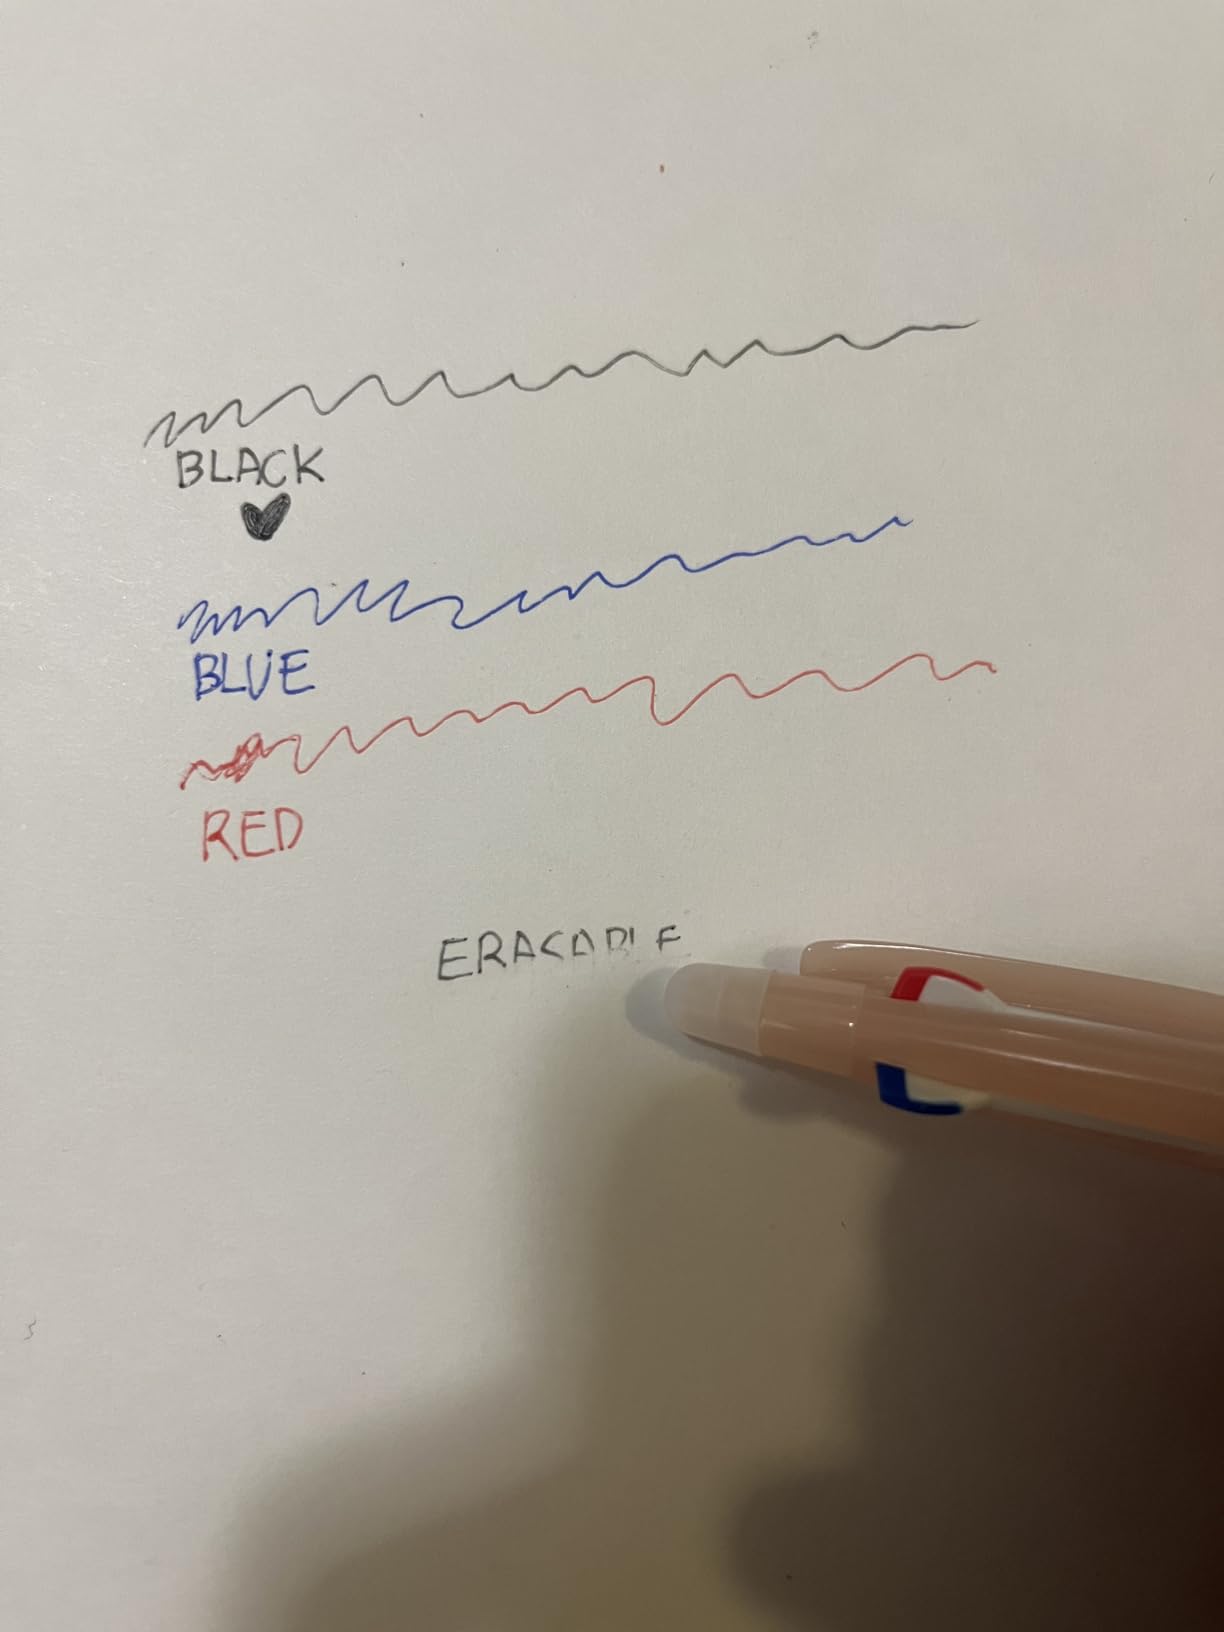 BLACK
BLUE
RED
ERASABLE